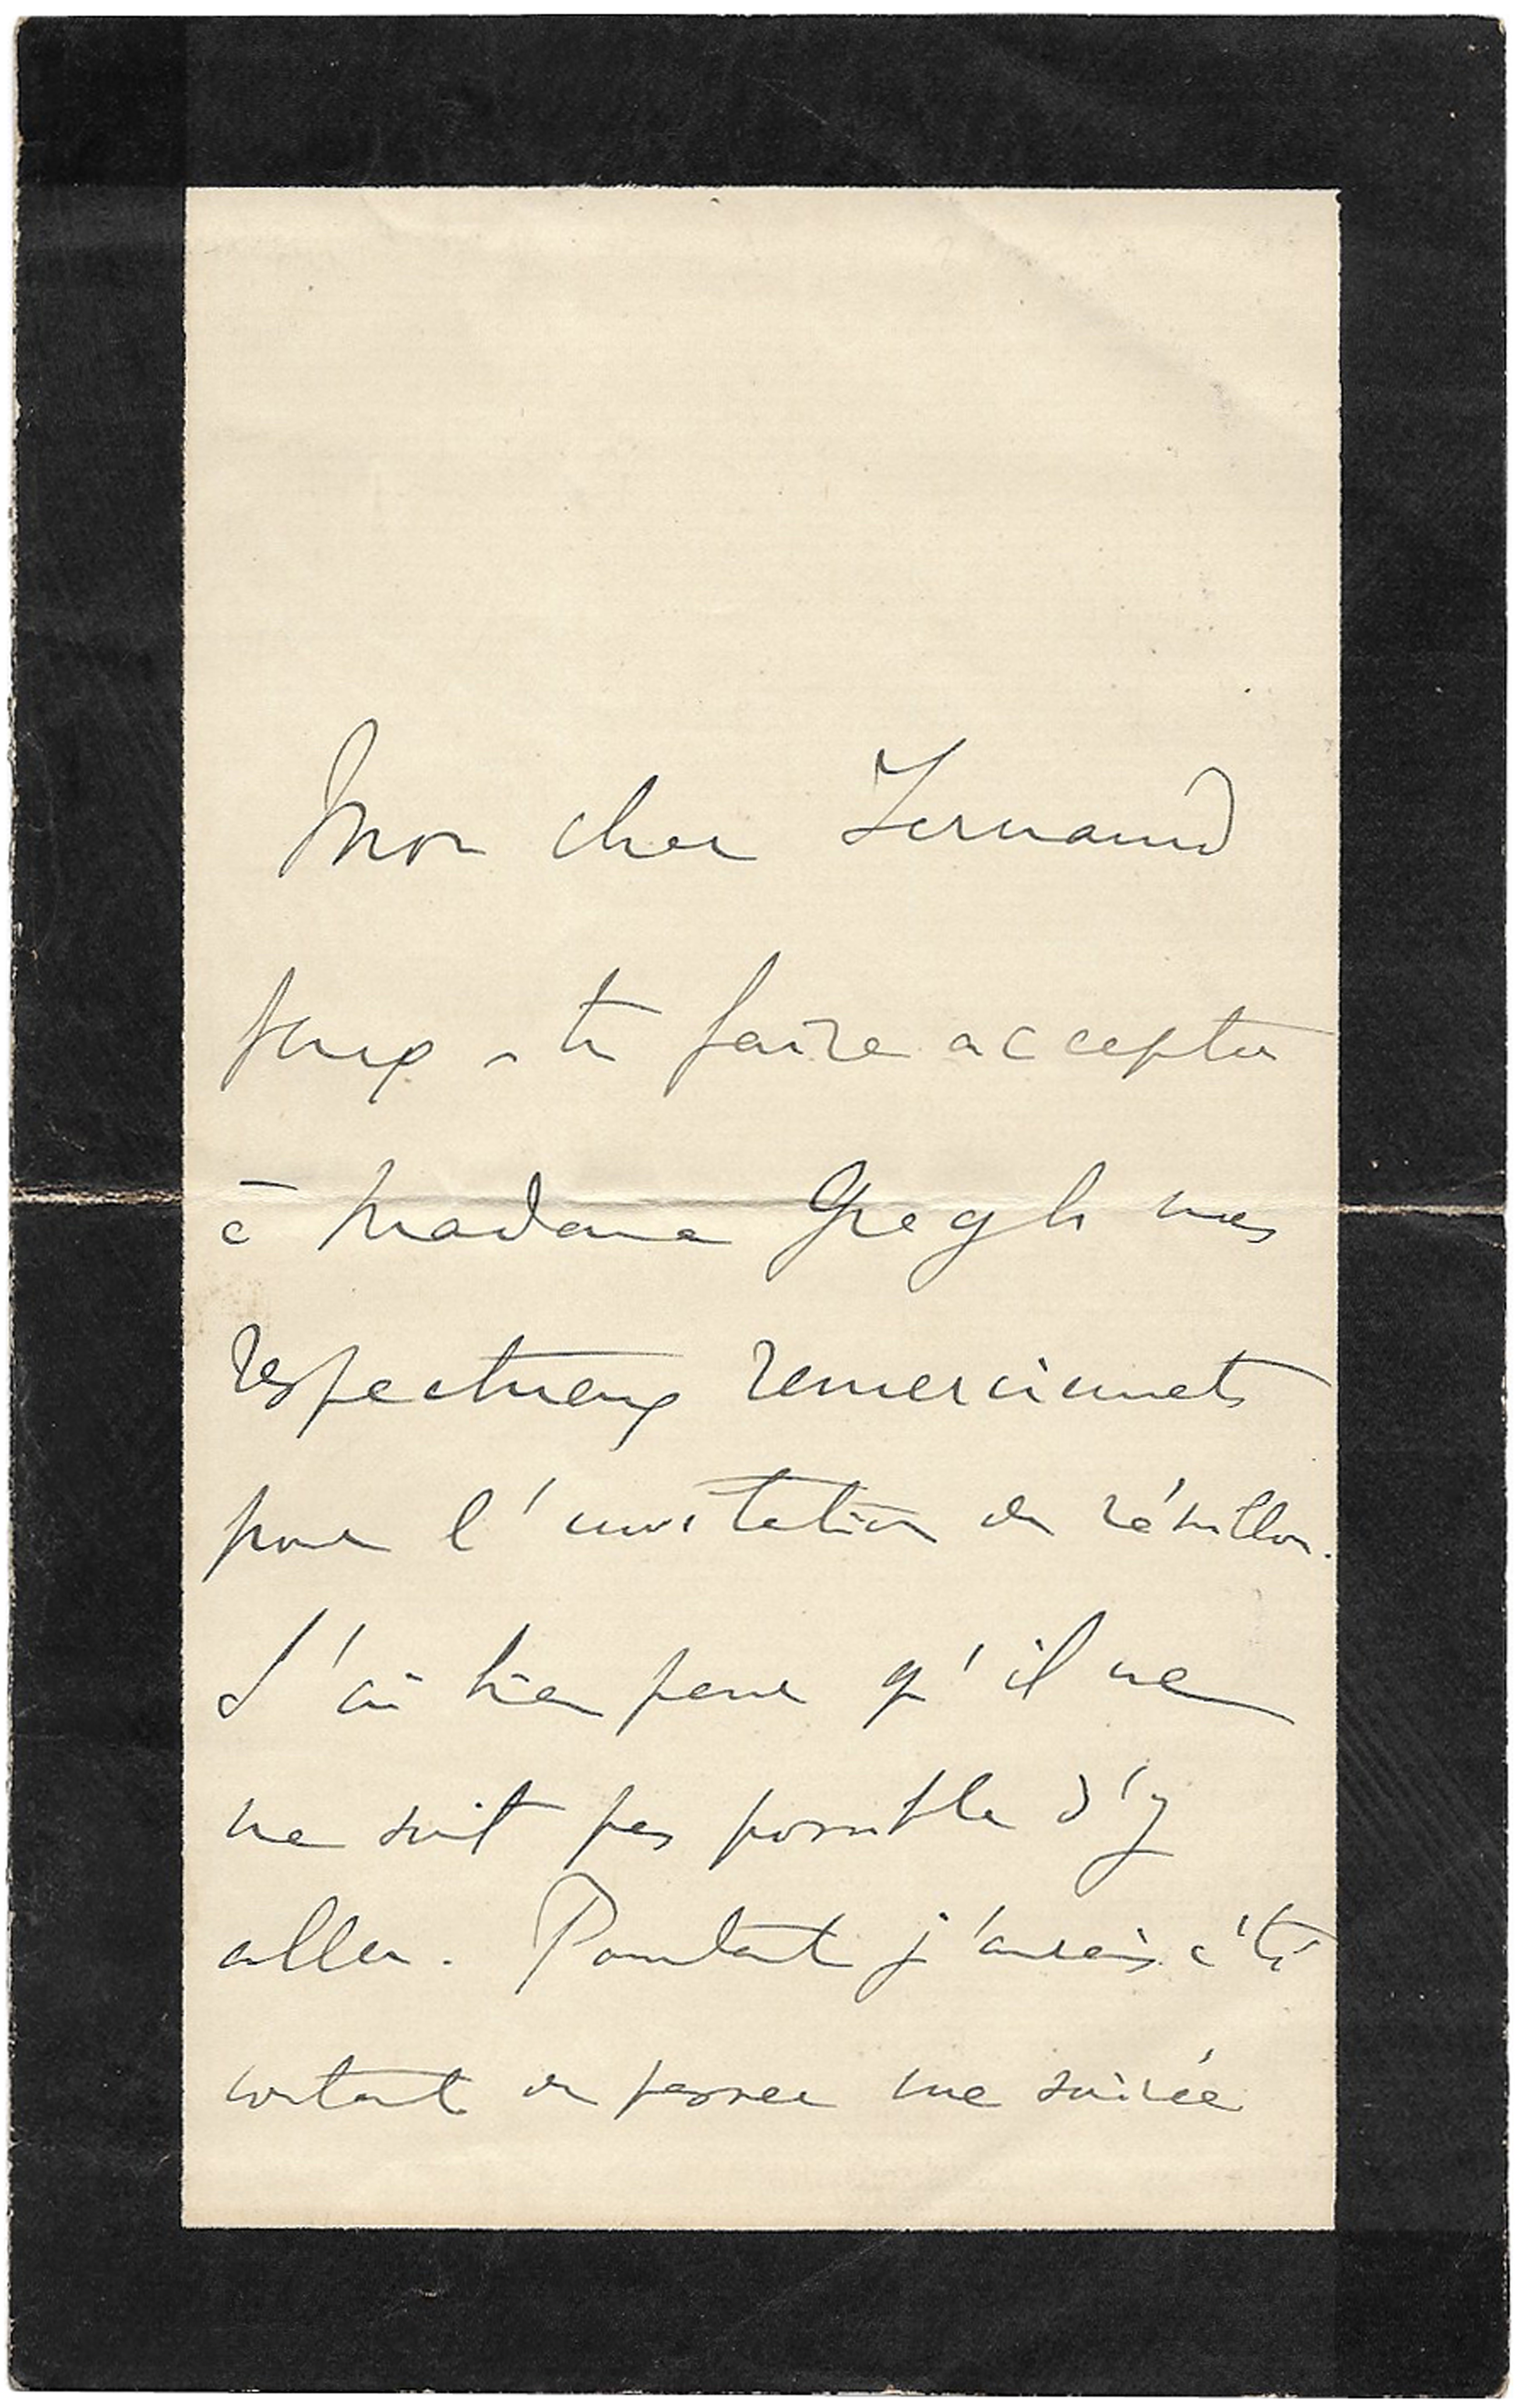 Mon cher Fernand
peux-tu faire accepter
à Madame Gregh mes
respectueux remerciements
pour l'invitation du réveillon.
J'ai bien peur qu'il ne
me soit pas possible d'y
aller. Pourtant j'aurais été
content de passer une soirée